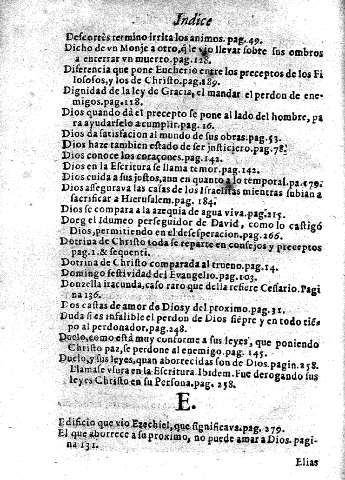 Indice
Descortès termino irrita los animos. pag. 49.
Dicho de vn Monje a otro, q̃ le vio llevar sobre sus ombros
a enterrar vn muerto. pag. 128.
Diferencia que pone Eucherio entre los preceptos de los Fi
losofos, y los de Christo. pag. 189.
Dignidad de la ley de Gracia, el mandar el perdon de ene-
migos. pag. 118.
Dios quando dà el precepto se pone al lado del hombre, pa
ra ayudarselo a cumplir. pag. 16.
Dios da satisfacion al mundo de sus obras. pag. 53.
Dios haze tambien estado de ser justiciero. pag. 78.
Dios conoce los coraçones. pag. 142.
Dios en la Escritura se llama temor. pag. 142.
Dios cuida a sus justos, aun en quanto a lo temporal. pa. 179.
Dios assegurava las casas de los Israelitas mientras subian a
sacrificar a Hierusalem. pag. 184.
Dios se compara a la azequia de agua viva. pag. 215.
Doeg el Idumeo perseguidor de David, como lo castigó
Dios, permitiendo en el desesperacion. pag. 266.
Dotrina de Christo toda se reparte en consejos y preceptos
pag. 1. & sequenti.
Dotrina de Christo comparada al trueno. pag. 14.
Domingo festividad del Evangelio. pag. 103.
Donzella iracunda, caso raro que della refiere Cesario. Pagi
na 136.
Dos castas de amor de Dios y del proximo. pag. 31.
Duda si es infalible el perdon de Dios siẽpre y en todo tiẽ-
po al perdonador. pag. 248.
Duelo, como està muy conforme a sus leyes, que poniendo
Christo paz, se perdone al enemigo. pag. 145.
Duelo, y sus leyes, quan aborrecidas son de Dios. pagin. 258.
Llamase vsura en la Escritura. Ibidem. Fue derogando sus
leyes Christo en su Persona. pag. 258.
E.
Edificio que vio Ezechiel, que significava. pag. 279.
El que aborrece a su proximo, no puede amar a Dios. pagi-
na 131.
Elias